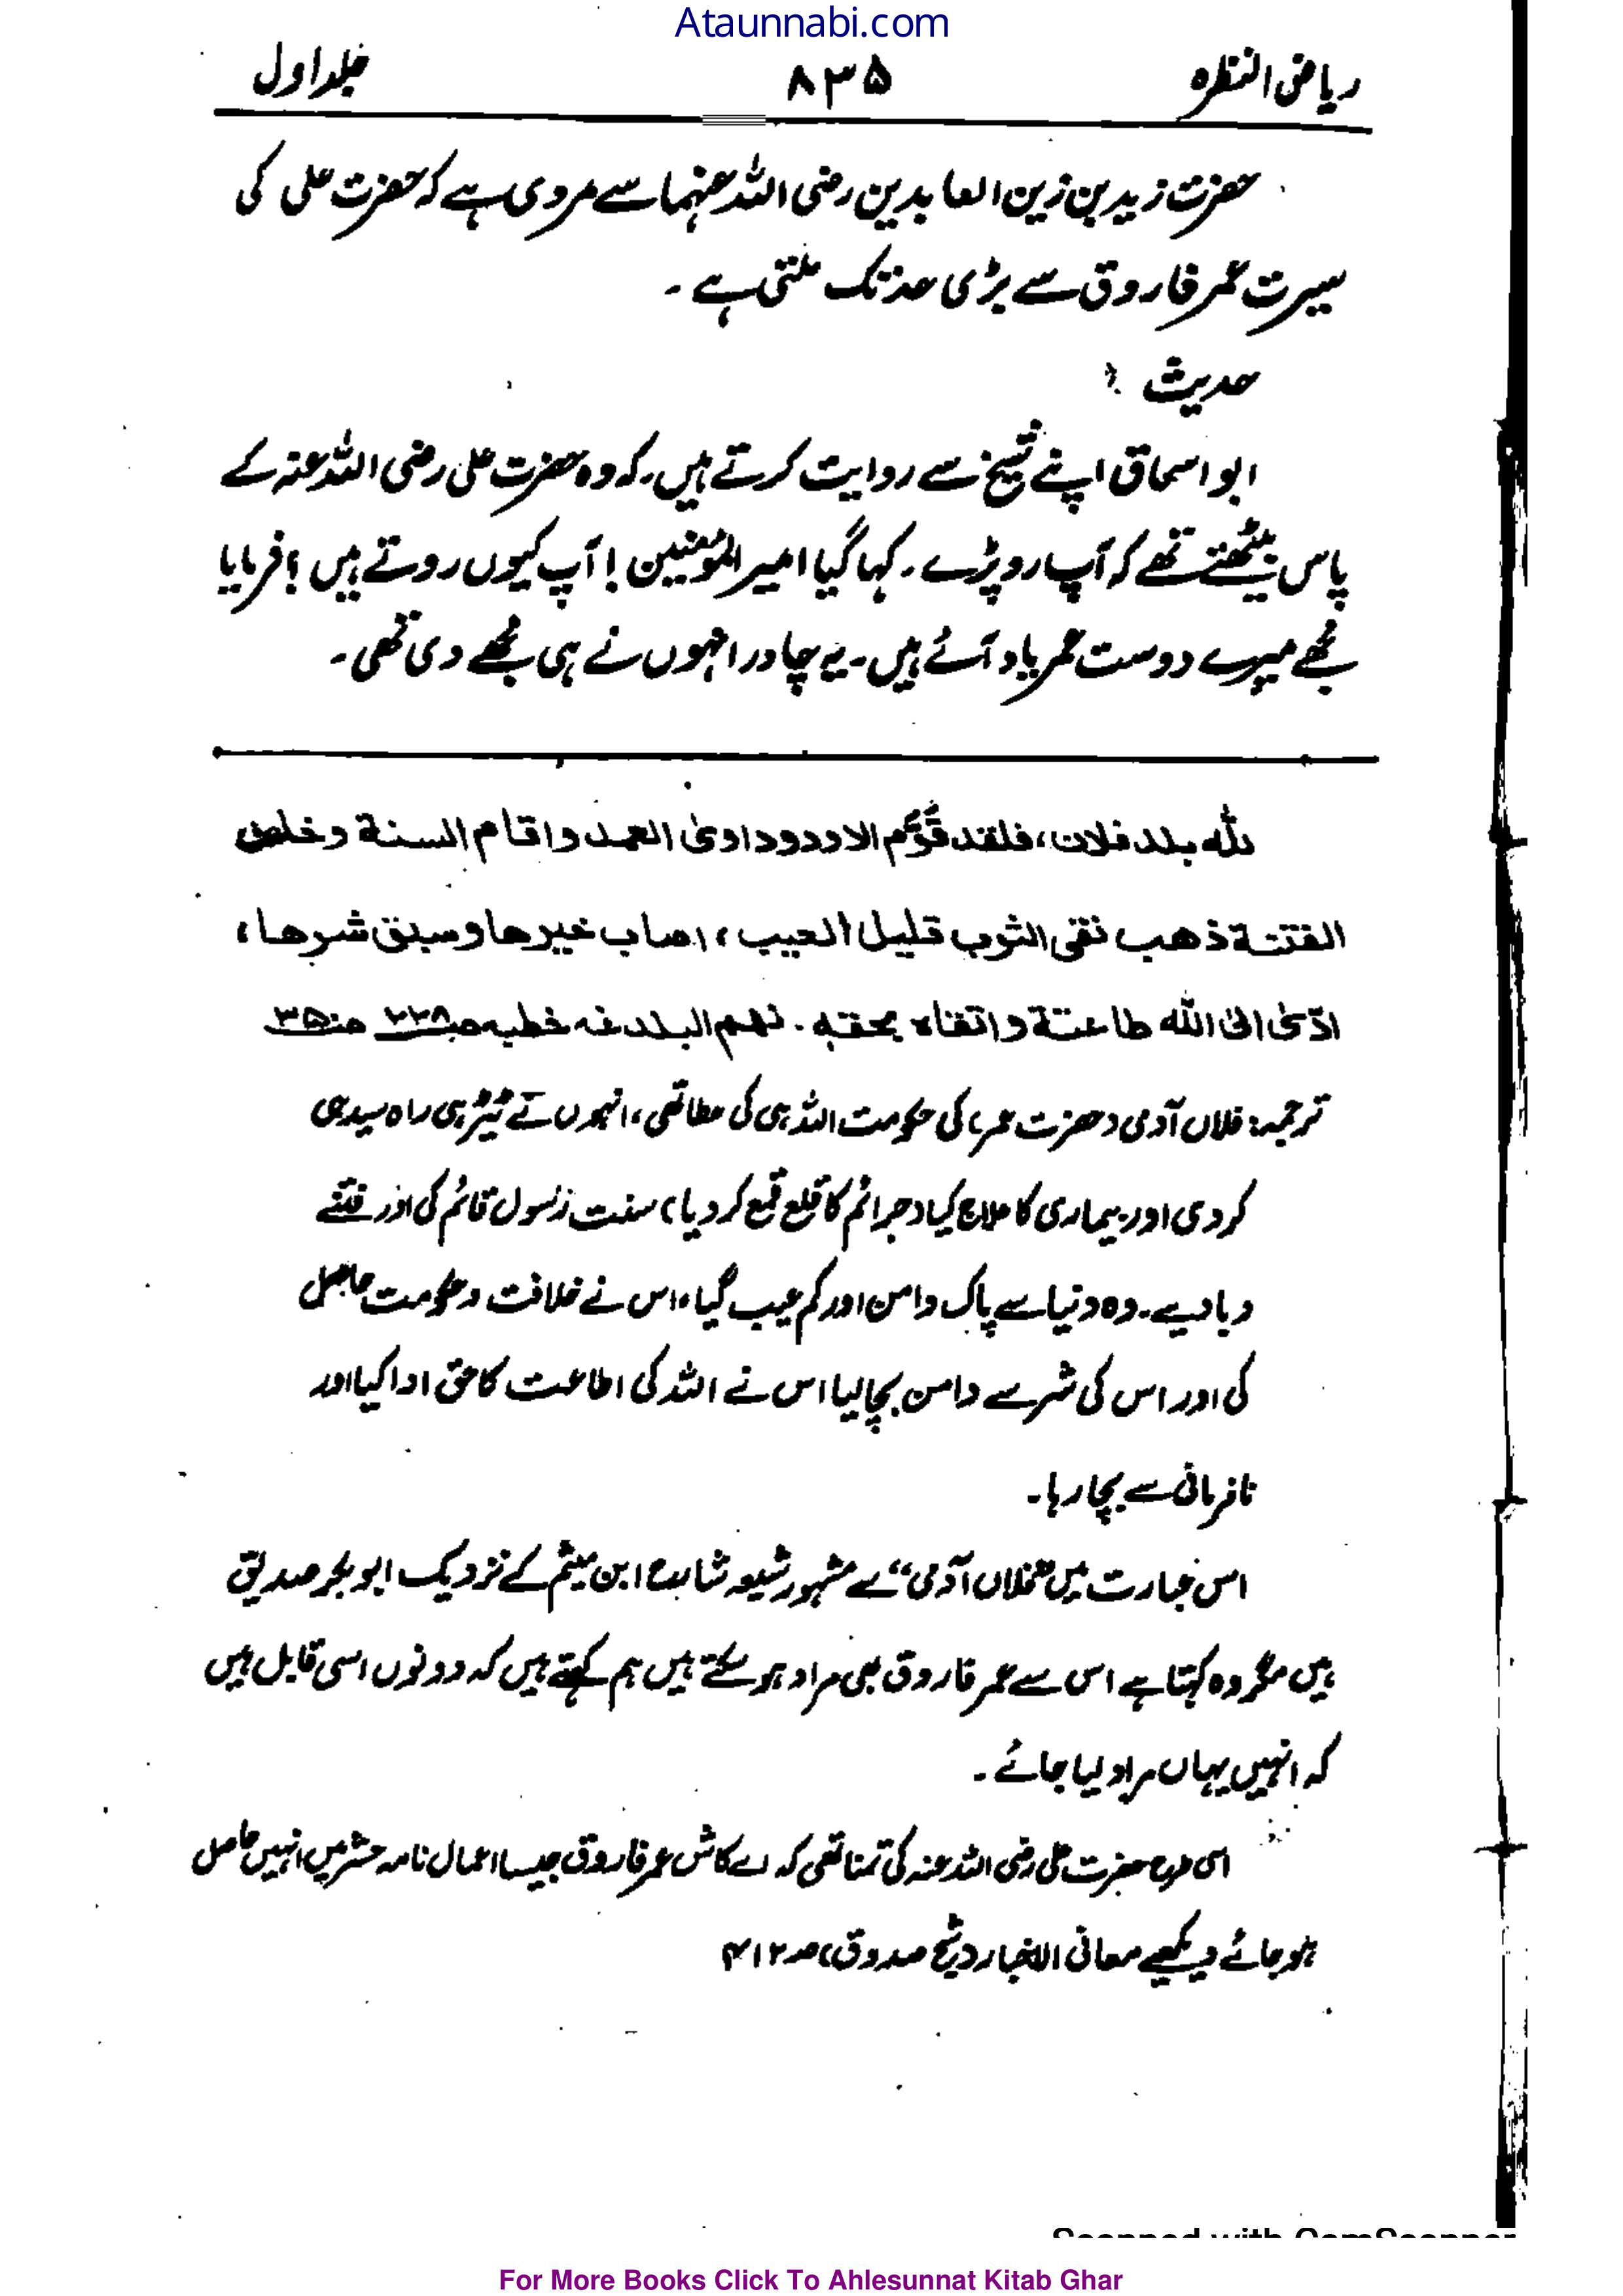 Ataunnabi.com
ریاض النضرہ ۸۳۵ جلد اول
حضرت زید بن زین العابدین رضی اللہ عنہما سے مروی ہے کہ حضرت علی کی
سیرت عمر فاروق سے بڑی حد تک ملتی ہے ۔
حدیث :
ابو اسحاق اپنے شیخ سے روایت کرتے ہیں۔ کہ وہ حضرت علی رضی اللہ عنہ کے
پاس بیٹھتے تھے کہ آپ رو پڑے ۔ کہا گیا امیر المؤمنین ! آپ کیوں روتے ہیں ؟ فرمایا
مجھے میرے دوست عمر یاد آئے ہیں ۔ یہ چادر انہوں نے ہی مجھے دی تھی ۔
للّٰه بلد فلان، فلقد قوّم الاود وداوىٰ العمد واقام السنة وخلف
الفتنة ذهب نقى الثوب قليل العيب ، اصاب خيرها وسبق شرها ،
ادّىٰ الىٰ اللّٰه طاعتة واتقاه بحقه . نهج البلاغه خطبه ۲۲۸ ص ۳۵
ترجمہ: فلاں آدمی (حضرت عمر) کی حکومت اللہ ہی کی عطا تھی ، انہوں نے ٹیڑھی راہ سیدھی
کر دی اور بیماری کا علاج کیا (جرائم کا قلع قمع کر دیا) سنت رسول قائم کی اور فتنے
دبا دیے ۔ وہ دنیا سے پاک دامن اور کم عیب گیا ، اس نے خلافت و حکومت حاصل
کی اور اس کی شر سے دامن بچا لیا اس نے اللہ کی اطاعت کا حق ادا کیا اور
نافرمانی سے بچا رہا ۔
اس عبارت میں “فلاں آدمی” سے مشہور شیعہ شارح ابن میثم کے نزدیک ابو بکر صدیق
ہیں مگر وہ کہتا ہے اس سے عمر فاروق بھی مراد ہو سکتے ہیں ہم کہتے ہیں کہ دونوں اسی قابل ہیں
کہ انہیں یہاں مراد لیا جائے ۔
اسی طرح حضرت علی رضی اللہ عنہ کی تمنا تھی کہ اے کاش عمر فاروق جیسا اعمال نامہ حشر میں انہیں حاصل
ہو جائے دیکھیے معانی الاخبار (شیخ صدوق) صـ ۴۱۲
Scanned with CamScanner
For More Books Click To Ahlesunnat Kitab Ghar